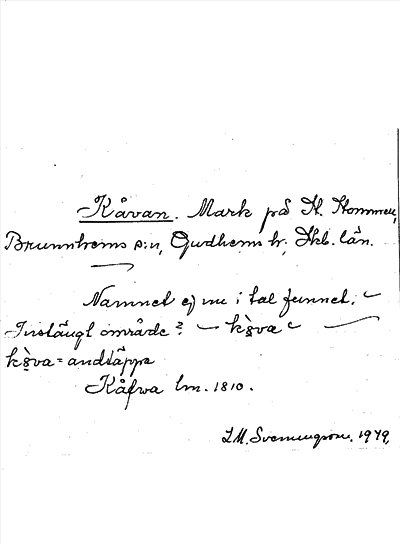 Kåvan. Mark på St. Stommen,
Brunnhems s:n, Gudhems hr, Skb. län.
Namnet ej nu i tal funnet.
Instängt område? – kòva
kòva = andtäppa
Kåfwa lm. 1810.
L.M. Svenungsson. 1979.